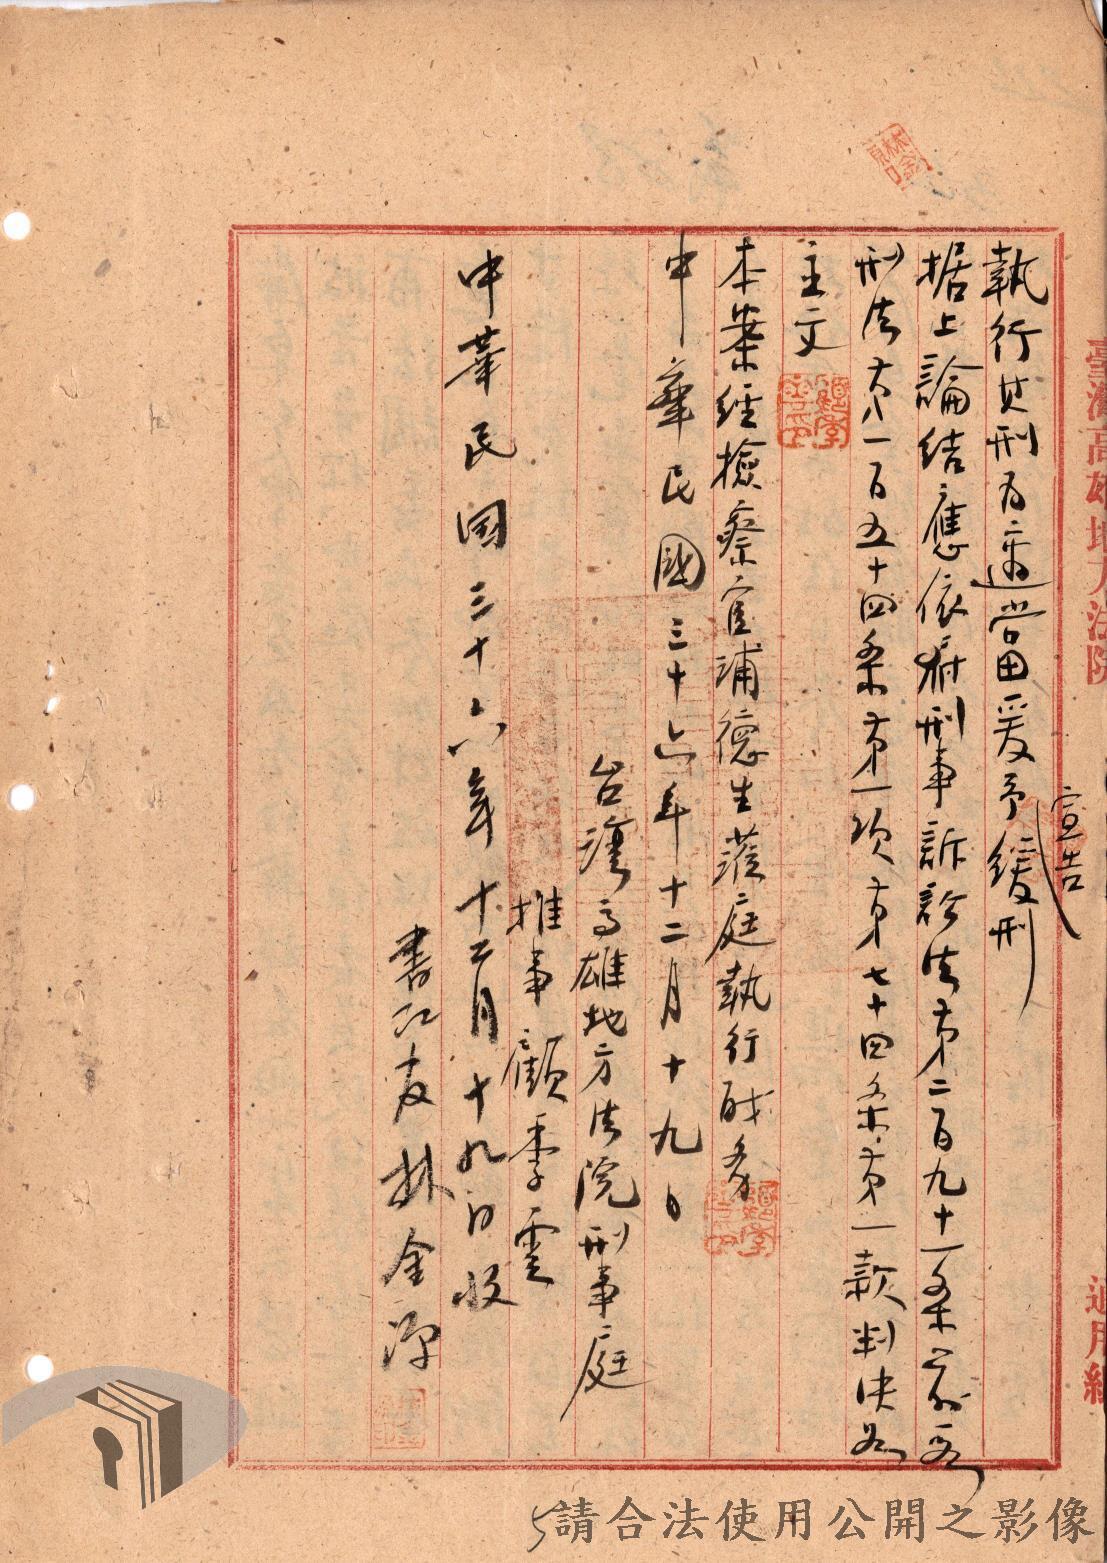 執行其刑為適當爰予緩刑
宣告
据上論結應依刑事訴訟法第二百九十一条前段
刑法第一百五十四条第一項第七十四条第一款判决如
主文
本案經檢察官蒲德生蒞庭執行職務
中華民國三十六年十二月十九日
台灣高雄地方法院刑事庭
推事顧季雲
中華民国三十六年十二月十九日收
書記官林金源
臺灣高雄地方法院
通用紙
請合法使用公開之影像